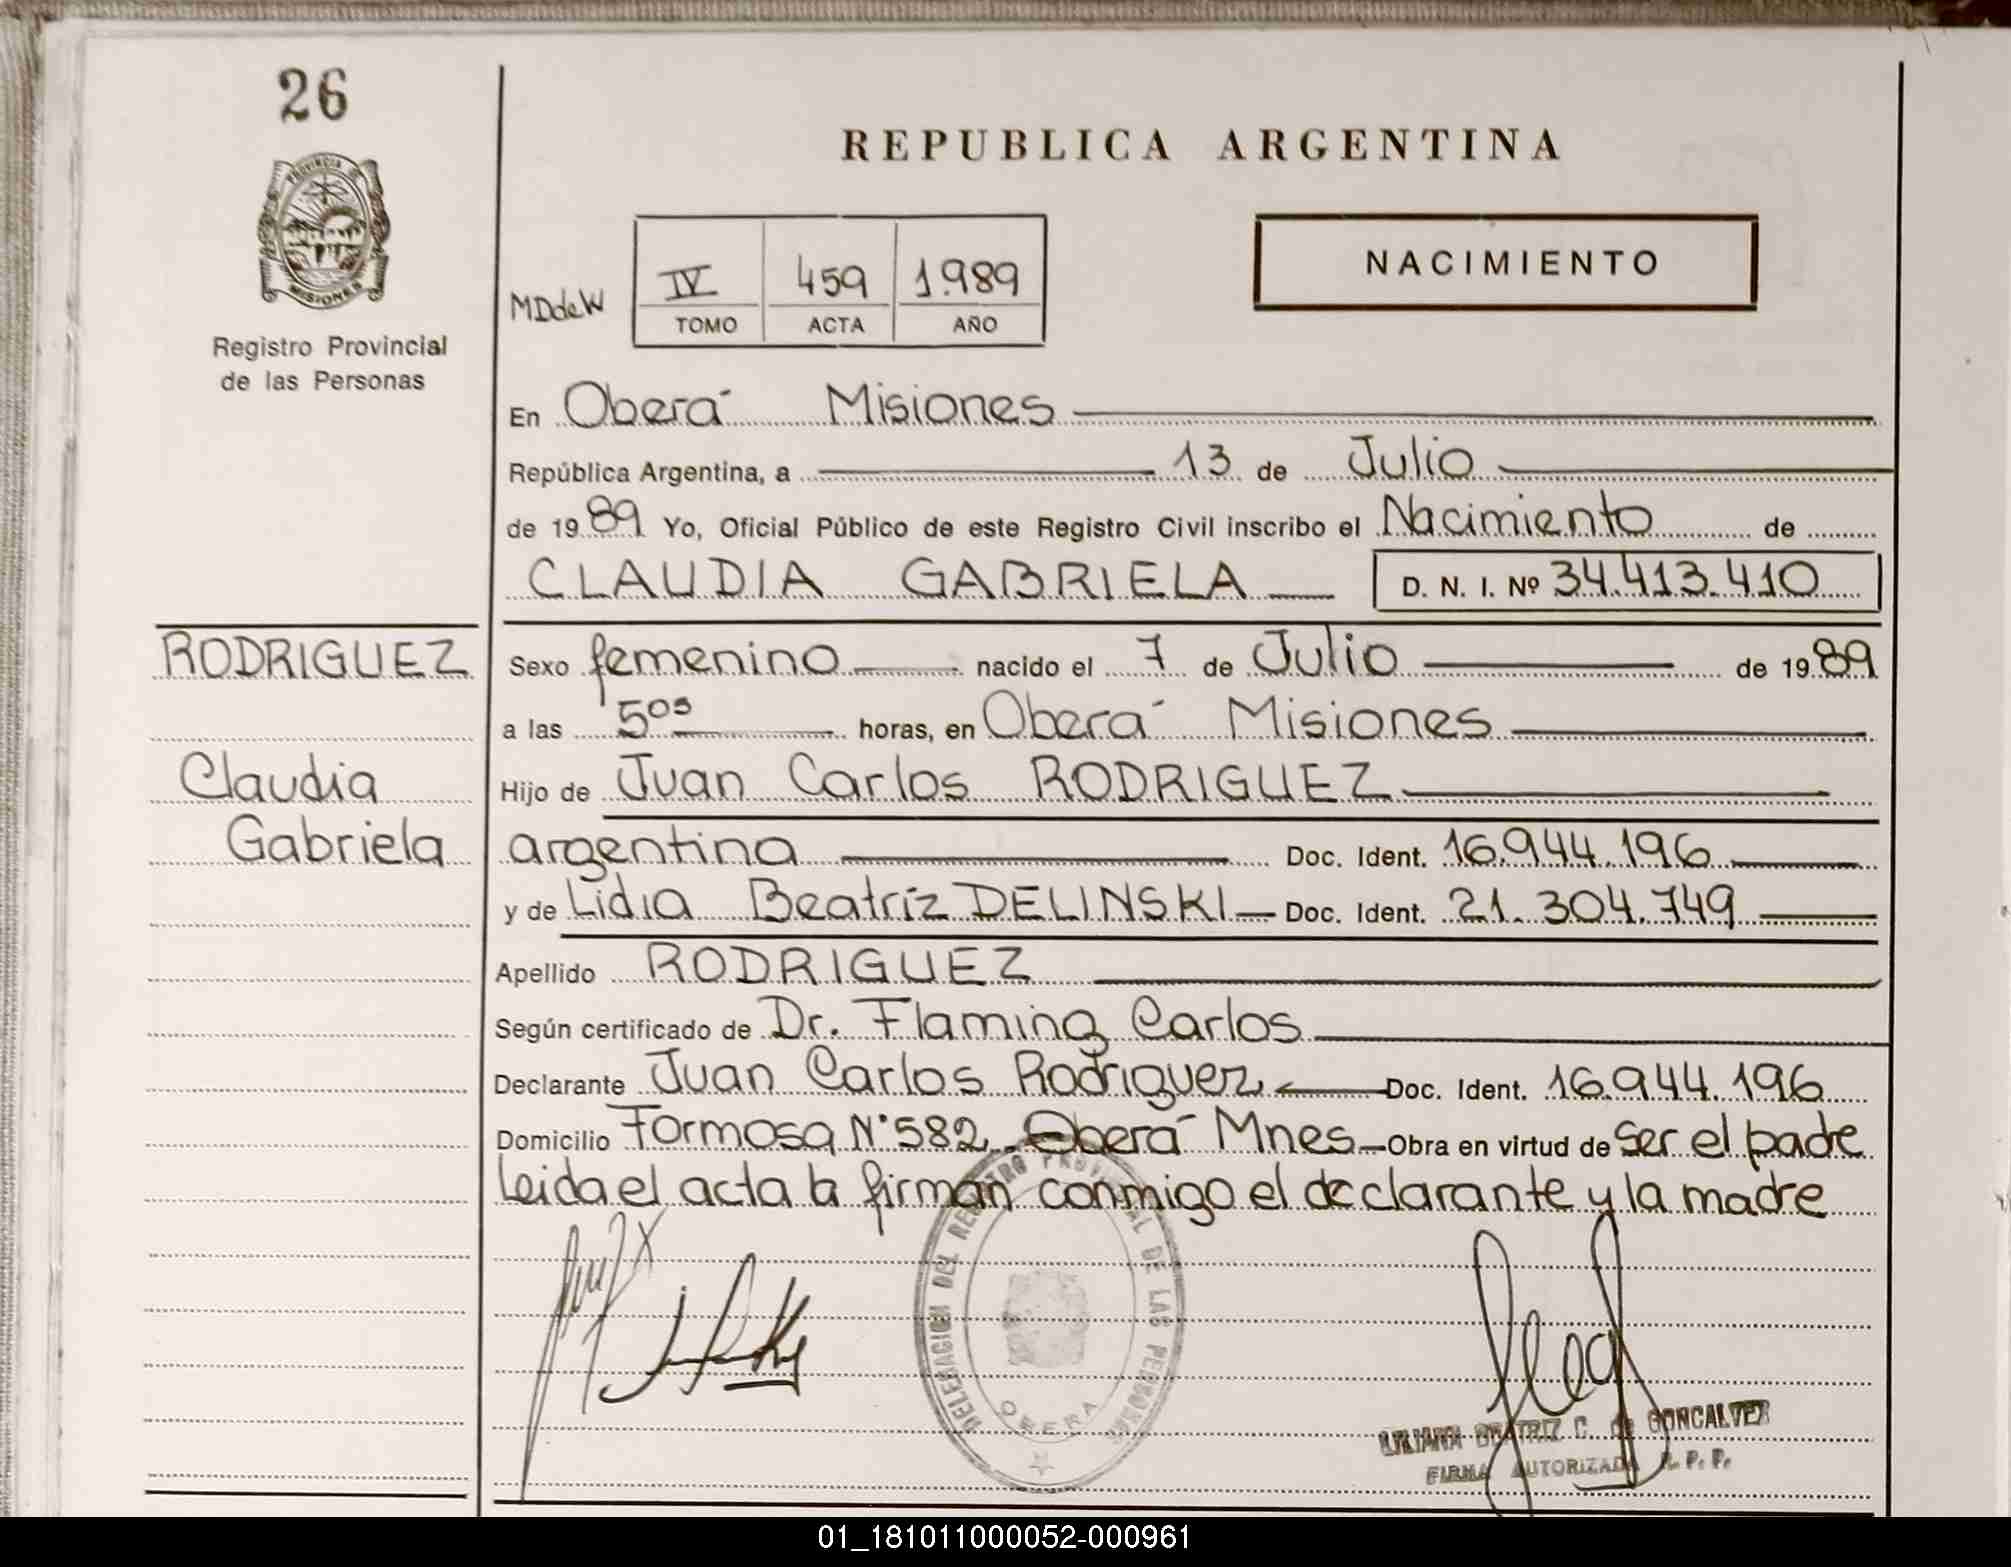 26
PROVINCIA DE
MISIONES
Registro Provincial
de las Personas
REPUBLICA ARGENTINA
NACIMIENTO
MDdeW
IV 459 1.989
TOMO ACTA AÑO
En Oberá Misiones
República Argentina, a 13 de Julio
de 1989 Yo, Oficial Público de este Registro Civil inscribo el Nacimiento de
CLAUDIA GABRIELA D. N. I. Nº 34.413.410
RODRIGUEZ
Claudia
Gabriela
Sexo femenino nacido el 7 de Julio de 1989
a las 5⁰⁵ horas, en Oberá Misiones
Hijo de Juan Carlos RODRIGUEZ
argentina Doc. Ident. 16.944.196
y de Lidia Beatríz DELINSKI Doc. Ident. 21.304.749
Apellido RODRIGUEZ
Según certificado de Dr. Flaming Carlos
Declarante Juan Carlos Rodriguez Doc. Ident. 16.944.196
Domicilio Formosa N°582 Oberá Mnes Obra en virtud de ser el padre
Leida el acta la firman conmigo el declarante y la madre
DELEGACION DEL REGISTRO PROVINCIAL DE LAS PERSONAS
OBERA
LILIANA BEATRIZ C. de GONCALVEZ
FIRMA AUTORIZADA R. P. P.
01_181011000052-000961